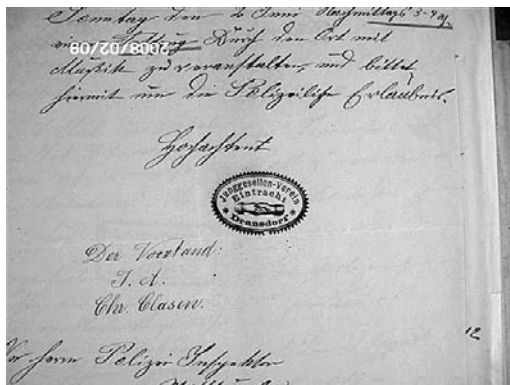 Sonntag den 2 Juni Nachmittags 3-4
ein Festzug Durch den Ort mit
2008/02/09
Musik zu veranstalten, und bittet
hiermit um die Polizeiliche Erlaubnis.
Hochachtent
Junggesellen-Verein
Eintracht
Dransdorf
Der Vorstand:
I. A.
Chr. Clasen.
12
Herrn Polizei Inspektor